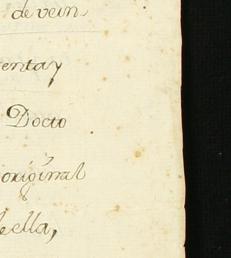 de vein
enta y
Docto
original
de ella,